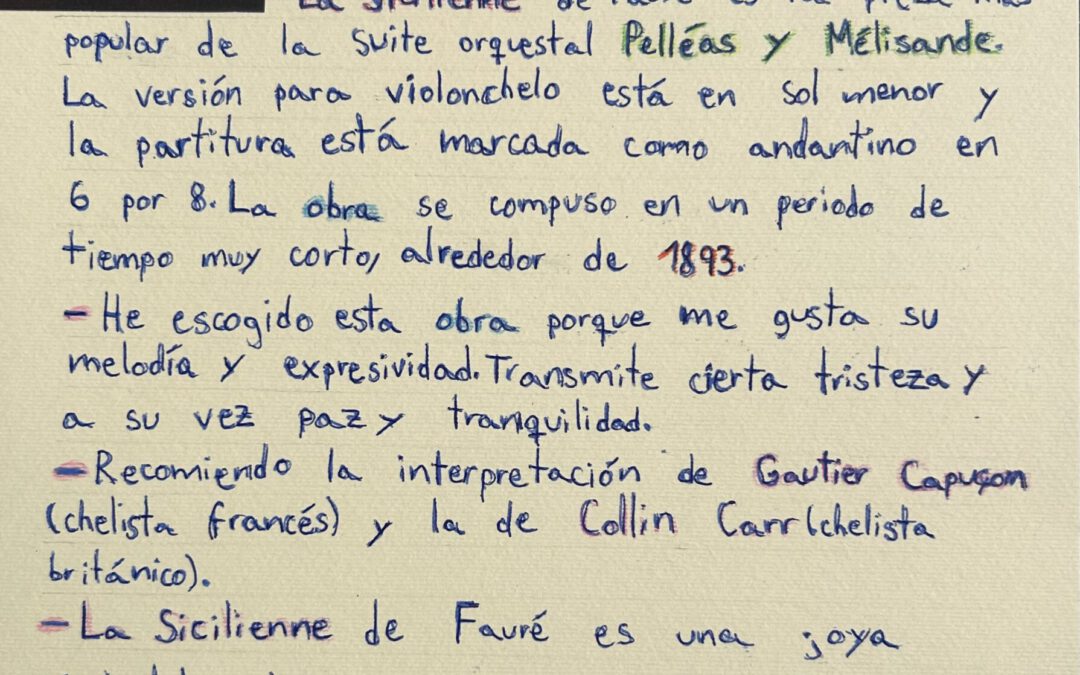 La Sicilienne de Fauré es la pieza más
popular de la suite orquestal Pelléas y Mélisande.
La versión para violonchelo está en sol menor y
la partitura está marcada como andantino en
6 por 8. La obra se compuso en un periodo de
tiempo muy corto, alrededor de 1893.
- He escogido esta obra porque me gusta su
melodía y expresividad. Transmite cierta tristeza y
a su vez paz y tranquilidad.
- Recomiendo la interpretación de Gautier Capuçon
(chelista francés) y la de Collin Carr (chelista
británico).
- La Sicilienne de Fauré es una joya